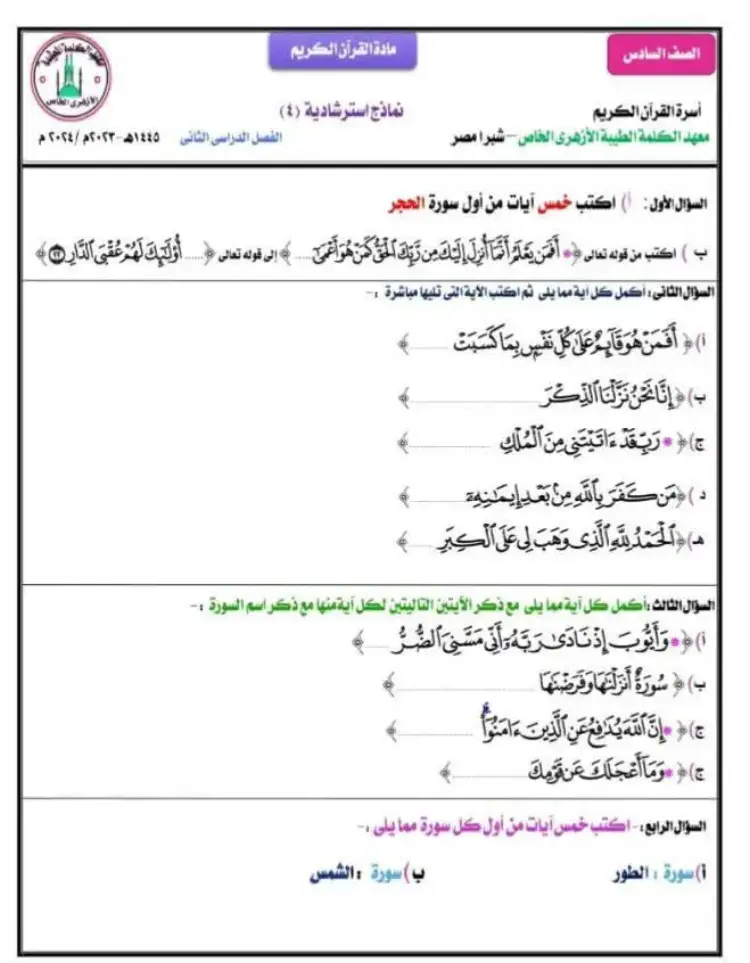 الصف السادس
مادة القرآن الكريم
أسرة القرآن الكريم
نماذج استرشادية (٤)
معهد الكلمة الطيبة الأزهرى الخاص – شبرا مصر
الفصل الدراسى الثانى
١٤٤٥هـ - ٢٠٢٣م / ٢٠٢٤ م
السؤال الأول: أ) اكتب خمس آيات من أول سورة الحجر
ب ) اكتب من قوله تعالى ﴿ ۞ أَفَمَن يَعْلَمُ أَنَّمَا أُنزِلَ إِلَيْكَ مِن رَّبِّكَ الْحَقُّ كَمَنْ هُوَ أَعْمَىٰ .... ﴾ إلى قوله تعالى ﴿ ..... أُوْلَٰٓئِكَ لَهُمْ عُقْبَى الدَّارِ ٢٢ ﴾
السؤال الثانى : أكمل كل آية مما يلى ثم اكتب الآية التى تليها مباشرة :-
أ) ﴿ أَفَمَنْ هُوَ قَآئِمٌ عَلَىٰ كُلِّ نَفْسٍۭ بِمَا كَسَبَتْ .......... ﴾
ب) ﴿ إِنَّا نَحْنُ نَزَّلْنَا الذِّكْرَ .......... ﴾
ج) ﴿ ۞ رَبِّ قَدْ ءَاتَيْتَنِى مِنَ الْمُلْكِ .......... ﴾
د ) ﴿ مَن كَفَرَ بِاللَّهِ مِنۢ بَعْدِ إِيمَٰنِهِۦٓ .......... ﴾
هـ) ﴿ الْحَمْدُ لِلَّهِ الَّذِى وَهَبَ لِى عَلَى الْكِبَرِ ...... ﴾
السؤال الثالث : أكمل كل آية مما يلى مع ذكر الآيتين التاليتين لكل آية منها مع ذكر اسم السورة :-
أ) ﴿ ۞ وَأَيُّوبَ إِذْ نَادَىٰ رَبَّهُۥٓ أَنِّى مَسَّنِىَ الضُّرُّ ...... ﴾
ب) ﴿ سُورَةٌ أَنزَلْنَٰهَا وَفَرَضْنَٰهَا .......... ﴾
ج) ﴿ ۞ إِنَّ اللَّهَ يُدَٰفِعُ عَنِ الَّذِينَ ءَامَنُوٓاْ .......... ﴾
ج) ﴿ ۞ وَمَآ أَعْجَلَكَ عَن قَوْمِكَ .......... ﴾
السؤال الرابع :- اكتب خمس آيات من أول كل سورة مما يلى :-
أ) سورة : الطور
ب) سورة : الشمس